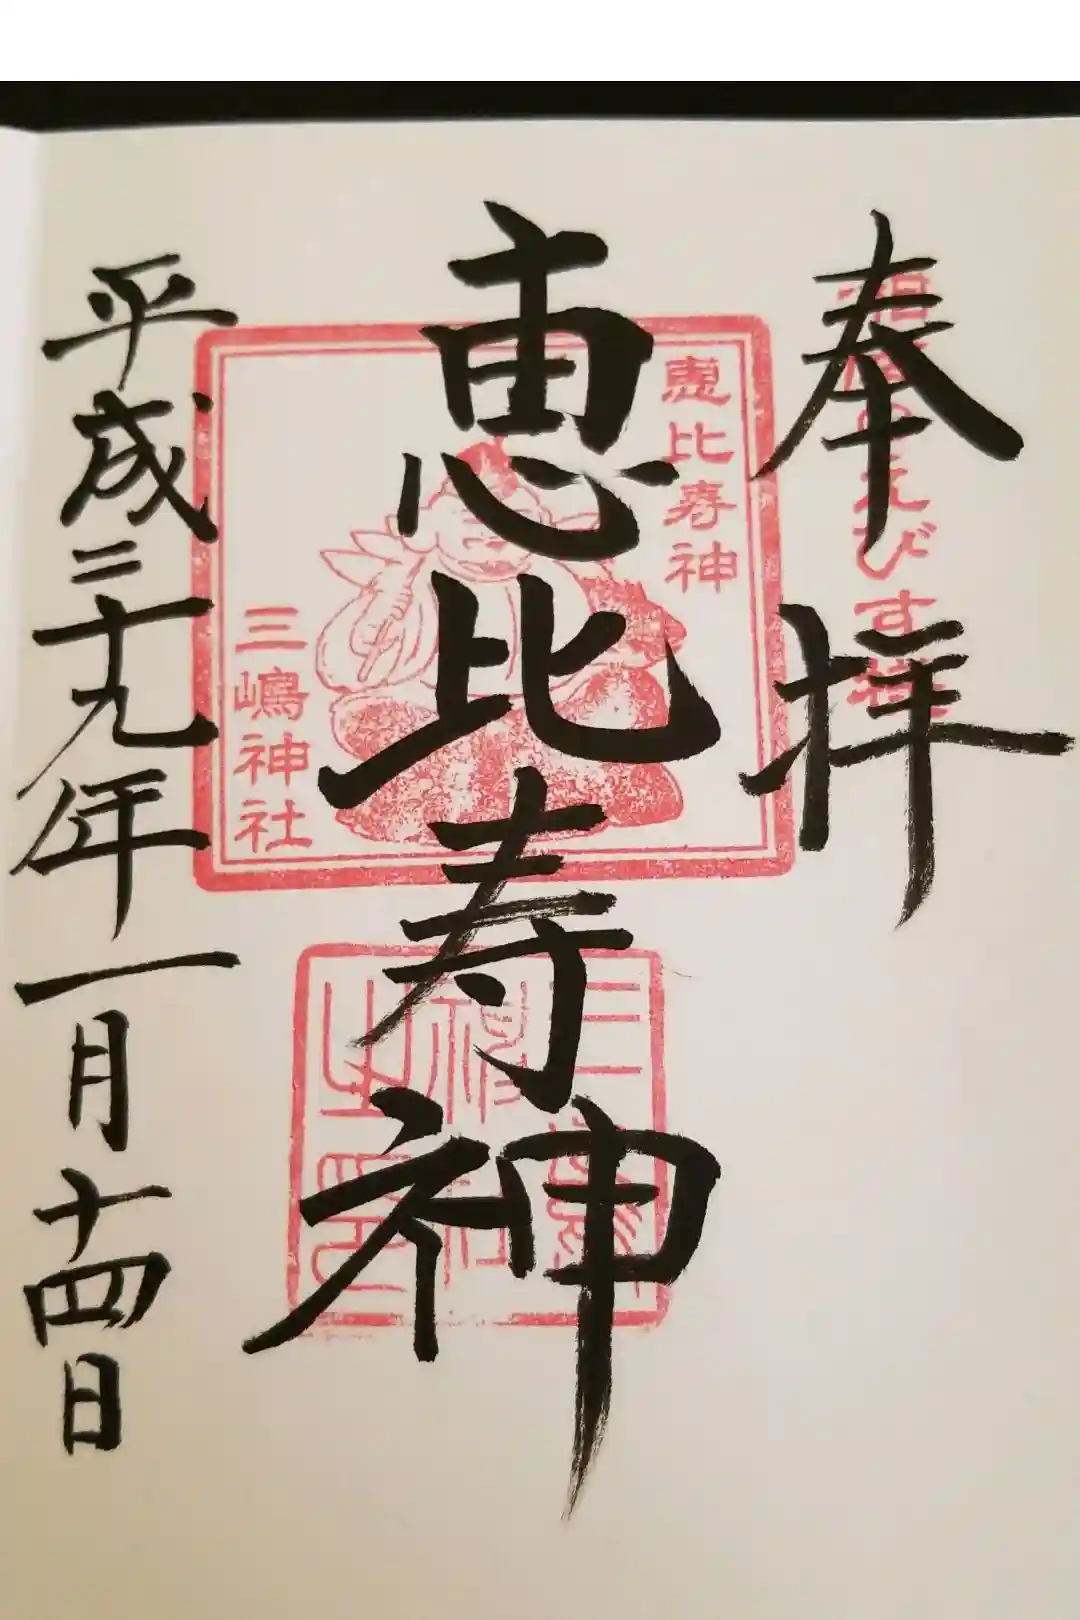 奉拝
えびす
恵比寿神
恵比寿神
三嶋神社
三嶋神社之印
平成二十九年一月十四日